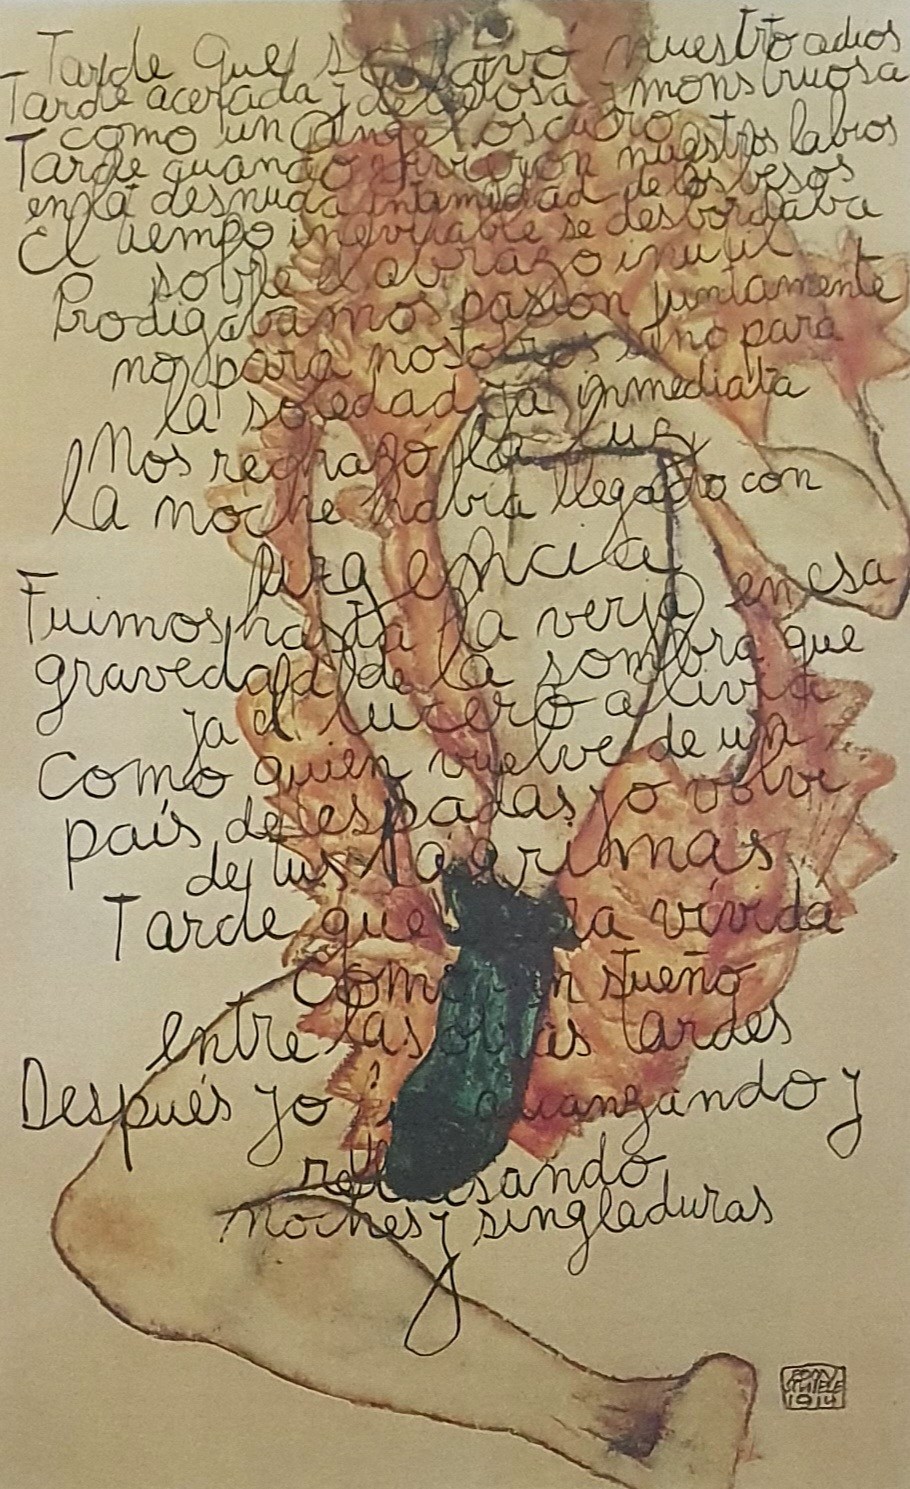 Tarde que socavó nuestro adiós
Tarde acerada y deleitosa y monstruosa
como un ángel oscuro
Tarde cuando vivieron nuestros labios
en la desnuda intimidad de los besos
El tiempo inevitable se desbordaba
sobre el abrazo inutil
Prodigábamos pasion juntamente
no para nosotros sino para
la soledad ya inmediata
Nos rechazó la luz
la noche habia llegado con
urgencia
Fuimos hasta la verja en esa
gravedad de la sombra que
ya el lucero alivia
Como quien vuelve de un
país de espadas yo volvi
de tus lágrimas
Tarde que dura vívida
Como un sueño
entre las otras tardes
Después yo fui alcanzando y
rebasando
noches y singladuras
EGON
SCHIELE
1914